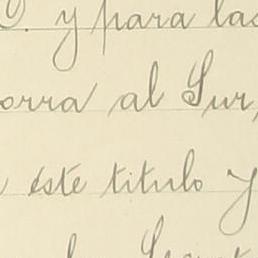 D. y para las
orra al Sur,
éste titulo y